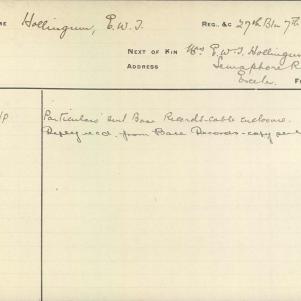 ME Hollingum, E.W.T. REG. &C 27th Bln 7th
NEXT OF KIN Mrs E.W.T. Hollingum
ADDRESS Semaphore R
Particulars sent Base Records-cable enclosure.
Reply recd. from Base Records-copy